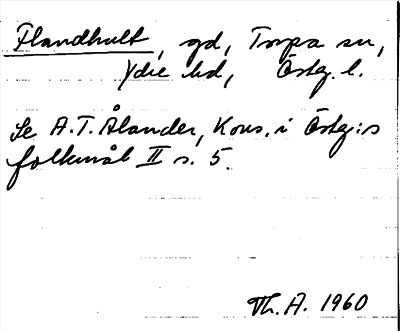 Flandhult, gd, Torpa sn,
Ydre hd, Östg. l.
Se A.T. Ålander, Kons. i Östg:s
folkmål II s. 5.
Th. A. 1960